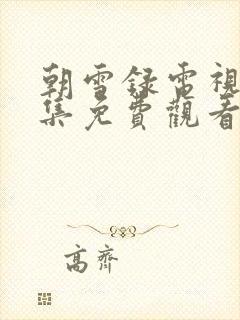 朝雪録電視
集免費觀看
高齊